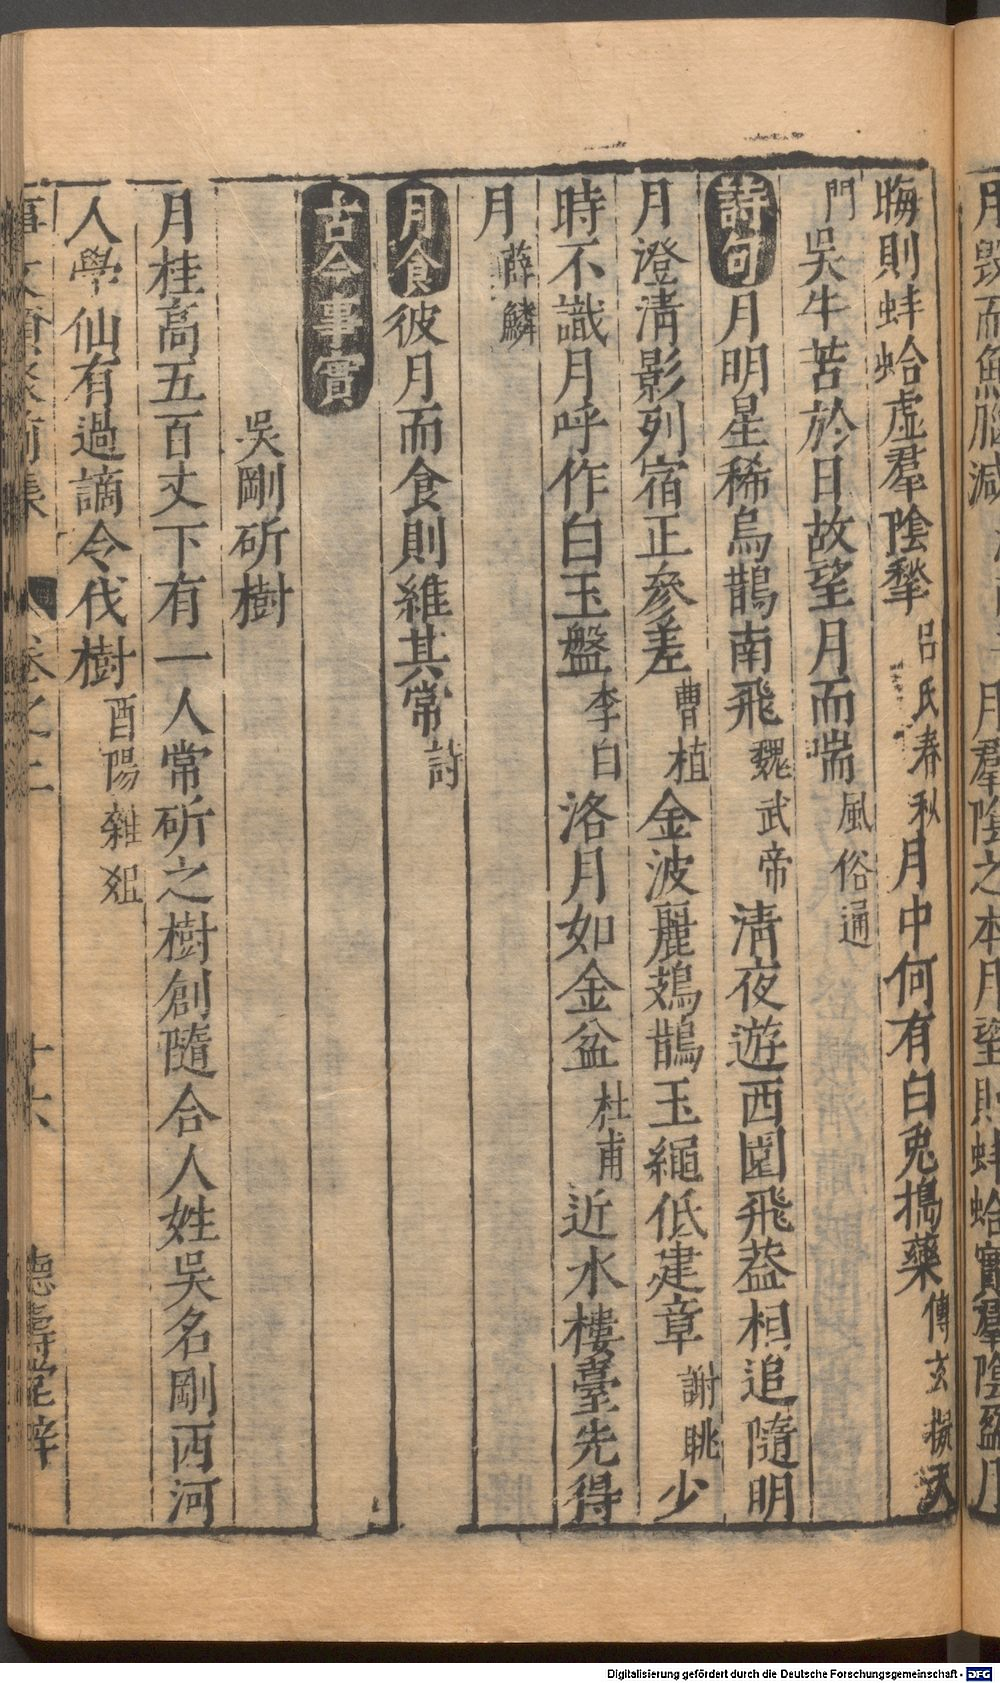 晦則蚌蛤虛羣陰揫呂氏春秋月中何有白兎搗藥傅玄擬天
門吳牛苦於日故望月而喘風俗通
詩句月明星稀烏鵲南飛魏武帝清夜遊西園飛葢相追隨明
月澄清影列宿正參差曹植金波麗鳷鵲玉繩低建章謝眺少
時不識月呼作白玉盤李白洛月如金盆杜甫近水樓臺先得
月薛鱗
月食彼月而食則維其常詩
古今事實
吳剛斫樹
月桂高五百丈下有一人常斫之樹創隨合人姓吳名剛西河
人學仙有過謫令伐樹酉陽雜爼
卷之二 十六 德壽堂梓
月羣陰之本月望則蚌蛤實羣陰盈月
Digitalisierung gefördert durch die Deutsche Forschungsgemeinschaft - DFG